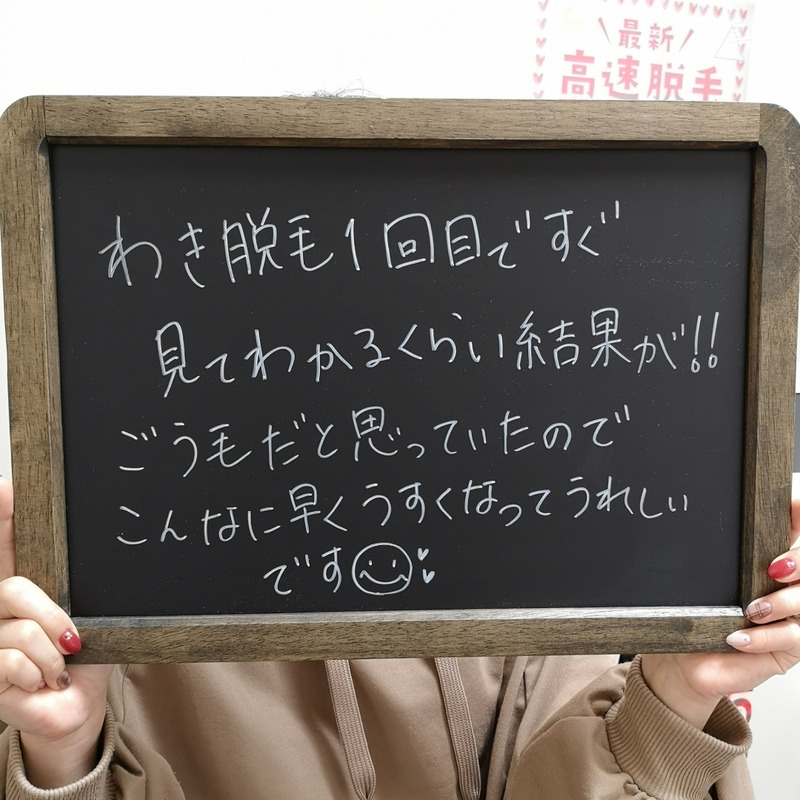 最新
高速脱毛
わき脱毛1回目ですぐ
見てわかるくらい結果が!!
ごう毛だと思っていたので
こんなに早くうすくなってうれしい
です